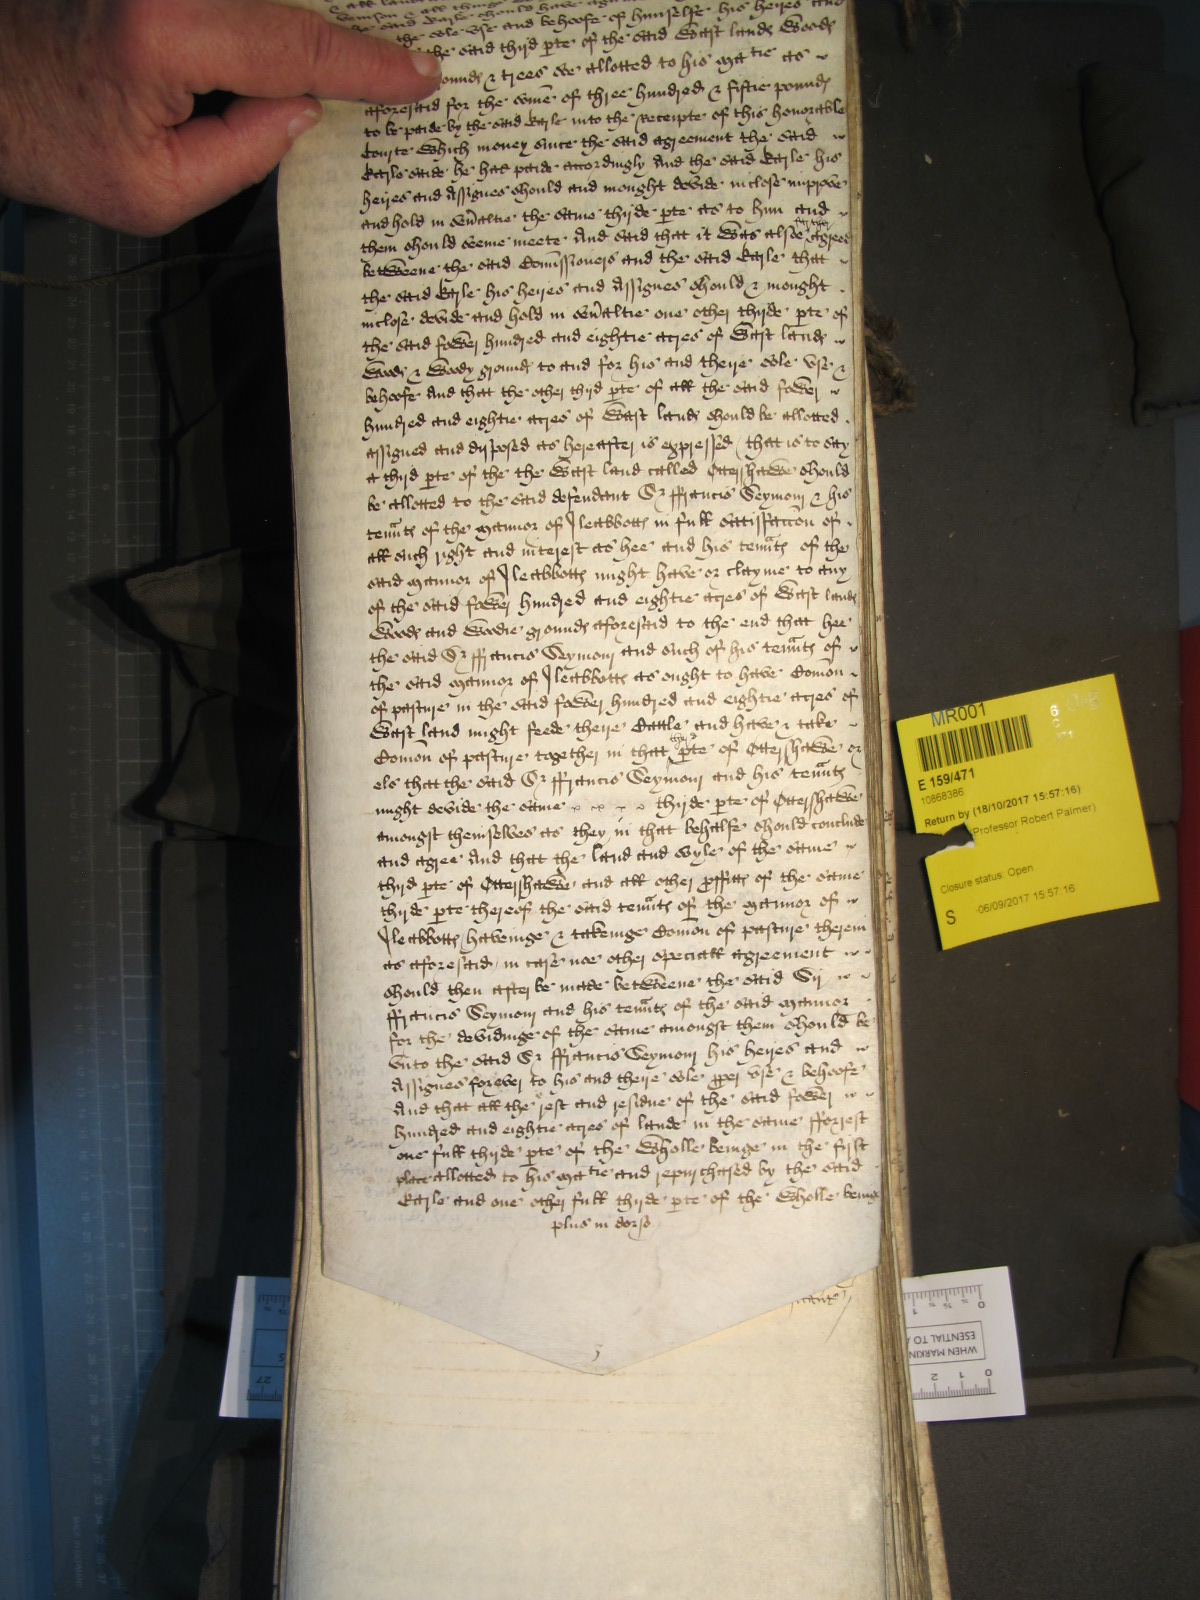 the said Earle should have
the sole vse and behoofe of himselfe his heyres and
the said third pte of the said Wast lands Woods
grounds & trees soe allotted to his matie as
aforesaid for the some of three hundred & fiftie pounds
to be paide by the said Earle into the Receipte of this honorable
Courte Which money since the said agreement the said
Earle saide he had paide accordingly And the said Earle his
heyres and Assignes should and mought devide inclose improve
and hold in sevaltie the same thirde pte as to him and
them should seeme meete And said that it Was alsoe further agreed
betweene the said Comissioners and the said Earle that
the said Earle his heyres and Assignes should & mought
inclose devide and hold in sevaltie one other thirde pte of
the said fower hundred and eightie acres of Wast lands
Woods & Woody grounds to and for his and theire sole vse &
behoofe And that the other third pte of all the said fower
hundred and eightie acres of Wast lands should be allotted
assigned and disposed as hereafter is expressed / that is to say
a third pte of the the Wast land called Ottershawe should
be allotted to the said defendant Sr ffrancis Seymour & his
tenāts of the mannor of Ileabbotts in full satisfaccon of
all such right and interest as hee and his tenāts of the
said mannor of Ileabbotts might have or clayme to any
of the said fower hundred and eightie acres of Wast lands
Woods and Woodie grounds aforesaid to the end that hee
the said Sr ffrancis Seymour and such of his tenāts of
the said mannor of Ileabbotts as ought to have Comon
of pasture in the said fower hundred and eightie acres of
Wast land might feede theire Cattle and have & take
Comon of pasture together in that third pte of Ottershawe or
els that the said Sr ffrancis Seymour and his tenāts
might devide the same thirde pte of Ottershawe
amongst themselves as they in that behalfe should conclude
and agree And that the land and soyle of the same
third pte of Ottershawe and all other proffitts of the same
thirde pte thereof the said tenāts of the mannor of
Ileabbotts haveinge & takeinge Comon of pasture therein
as aforesaid / in case noe other speciall agreement
should then after be made betweene the said Sir
ffrancis Seymour and his tenāts of the said mannor
for the devidinge of the same amongst them should be
vnto the said Sr ffrancis Seymour his heyres and
Assignes forever to his and theire sole pper vse & behoofe
And that all the rest and residue of the said fower
hundred and eightie acres of lande in the same fforrest
one full thirde pte of the Wholle beinge in the first
place allotted to his matie and repurchased by the said
Earle and one other full thirde pte of the Wholle beinge
plus in dorso
MR001
E 159/471
10868386
Return by (18/10/2017 15:57:16)
Professor Robert Palmer)
Closure status: Open
S 06/09/2017 15:57:16
WHEN MARKIN
ESENTIAL TO